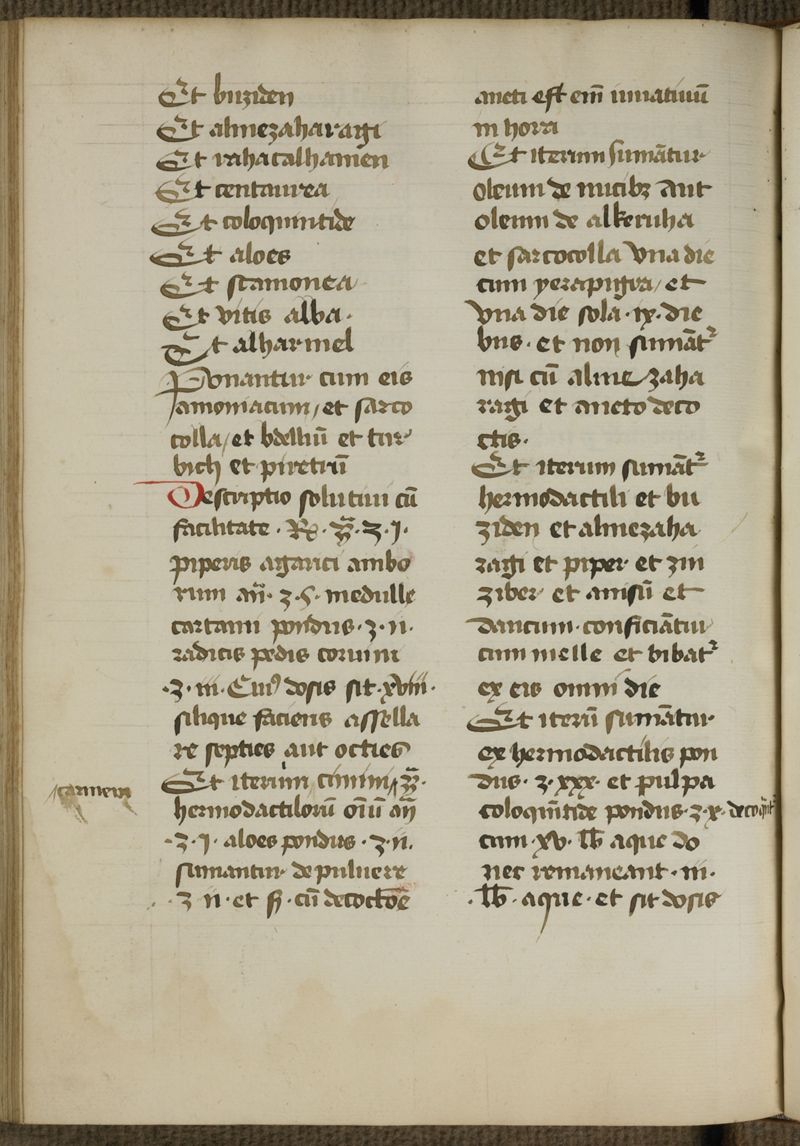 Et buziden
Et almezaharagi
Et rahacalhamen
Et centaurea
Et coloquintide
Et aloes
Et scamonea
Et vitis alba.
Et alharmel
Ponantur cum eis
armoniacum, et sarco
colla, et bdelliū et tur
bich et piretrū
Descriptio solutiui cū
facilitate. ℞. zz̄. ʒ. j.
piperis agarici ambo
rum añ. ʒ. s. medulle
cartami pondus. ʒ. ii.
radicis pedis coruini
.ʒ. iii. Cui9 dosis sit. xviii.
silique faciens assella
re septies aut octies
Et iterum cimini, zz̄.
hermodactilorū oīū añ
.ʒ. j. aloes pondus. ʒ. ii.
sumantur de puluere
.ʒ ii. et s̄. cū decoctōe
aneti est em̄ iuuatiuū
in hora
Et iterum sumātur
oleum de nucibꝫ aut
oleum de alkeruha
et sarcocolla vna die
cum yerapigra, et
vna die sola. ix. die
bus. et non sumāt᷑
nisi cū almezaha
ragi et aneto deco
ctis.
Et iterum sumāt᷑
hermodactili et bu
ziden et almezaha
ragi et piper et zin
ziber et anisū et
dancum. conficiātur
cum melle et bibat᷑
ex eis omni die
Et iterū sumātur
ex hermodactilis pon
dus. ʒ. xxx. et pulpa
coloquītide pondus. ʒ. x. decoq̄nt᷑
cum. xv. lb aque do
nec remaneant. iii.
.lb. aque. et sit dosis